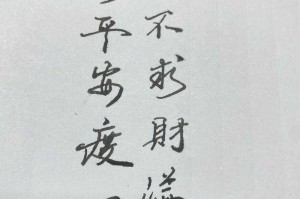 不求財
平安度